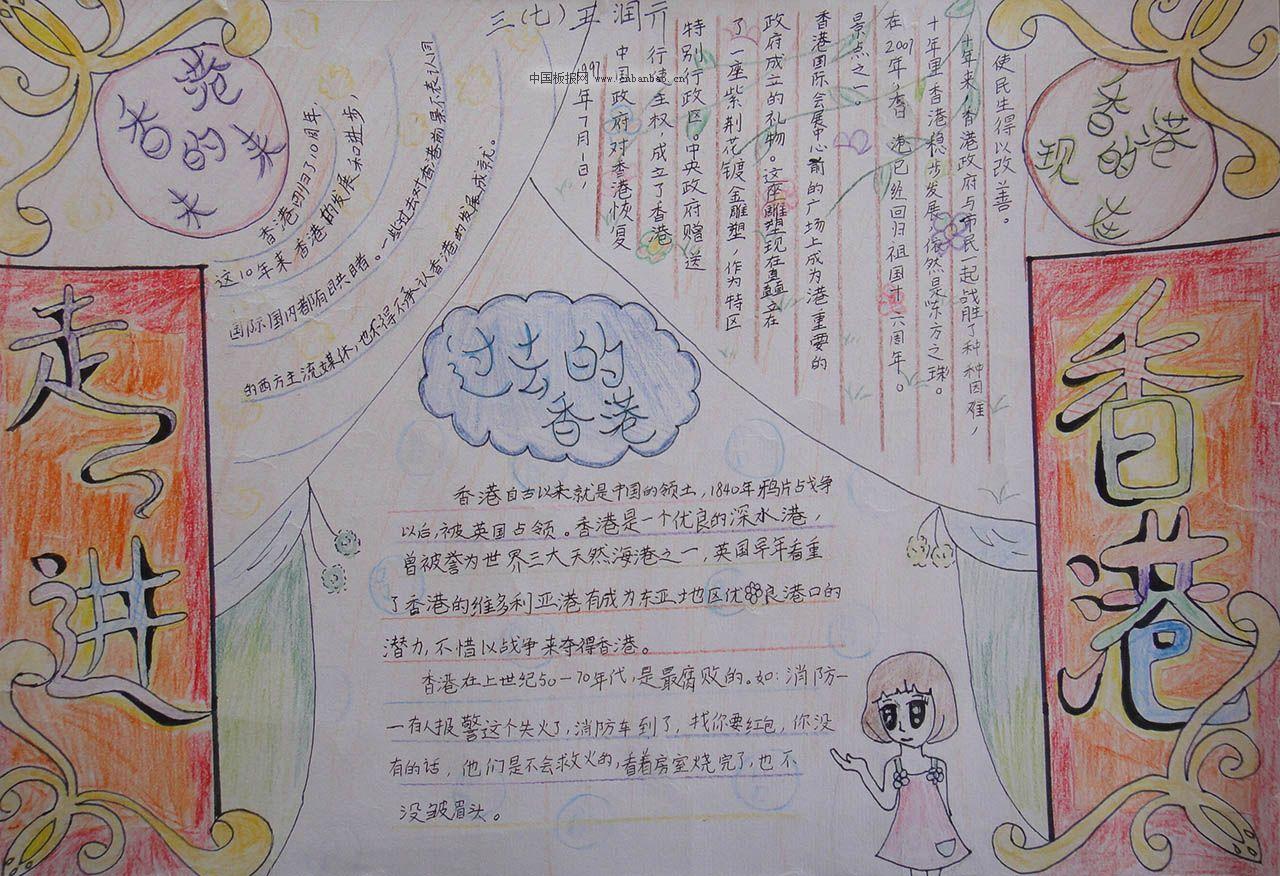 三(七) 尹润亓
中国板报网 www.cnbanbao.cn
走进
香港
香港的未来
香港刚归了10周年
这10年来香港的发展和进步,
国际国内都有目共目者。一些过去对香港前景不表认同
的西方主流媒体,也不得不承认香港的发展成就。
过去的
香港
香港自古以来就是中国的领土,1840年鸦片占战争
以后,被英国占领。香港是一个优良的深水港,
曾被誉为世界三大天然海港之一,英国早年看重
了香港的维多利亚港有成为东亚地区优良港口的
潜力,不惜以战争来夺得香港。
香港在上世纪50一70年代,是最腐败的。如:消防一
一有人报警这个失火了,消防车到了,找你要红包,你没
有的话,他们是不会救火的,看着房室烧完了,也不
没皱眉头。
香港的现在
1997年7月1日,
中国政府对香港恢复
行使主权,成立了香港
特别行政区。中央政府赠送
了一座紫荆花镀金雕塑,作为特区
政府成立的礼物。这座雕塑现在矗立在
香港国际会展中心前的广场上成为港重要的
景点之一。
在2007年,香港已经回归祖国十六周年。
十年里香港稳步发展,依然是东方之珠。
十年来,香港政府与市民一起战胜了种种因难,
使民生得以改善。